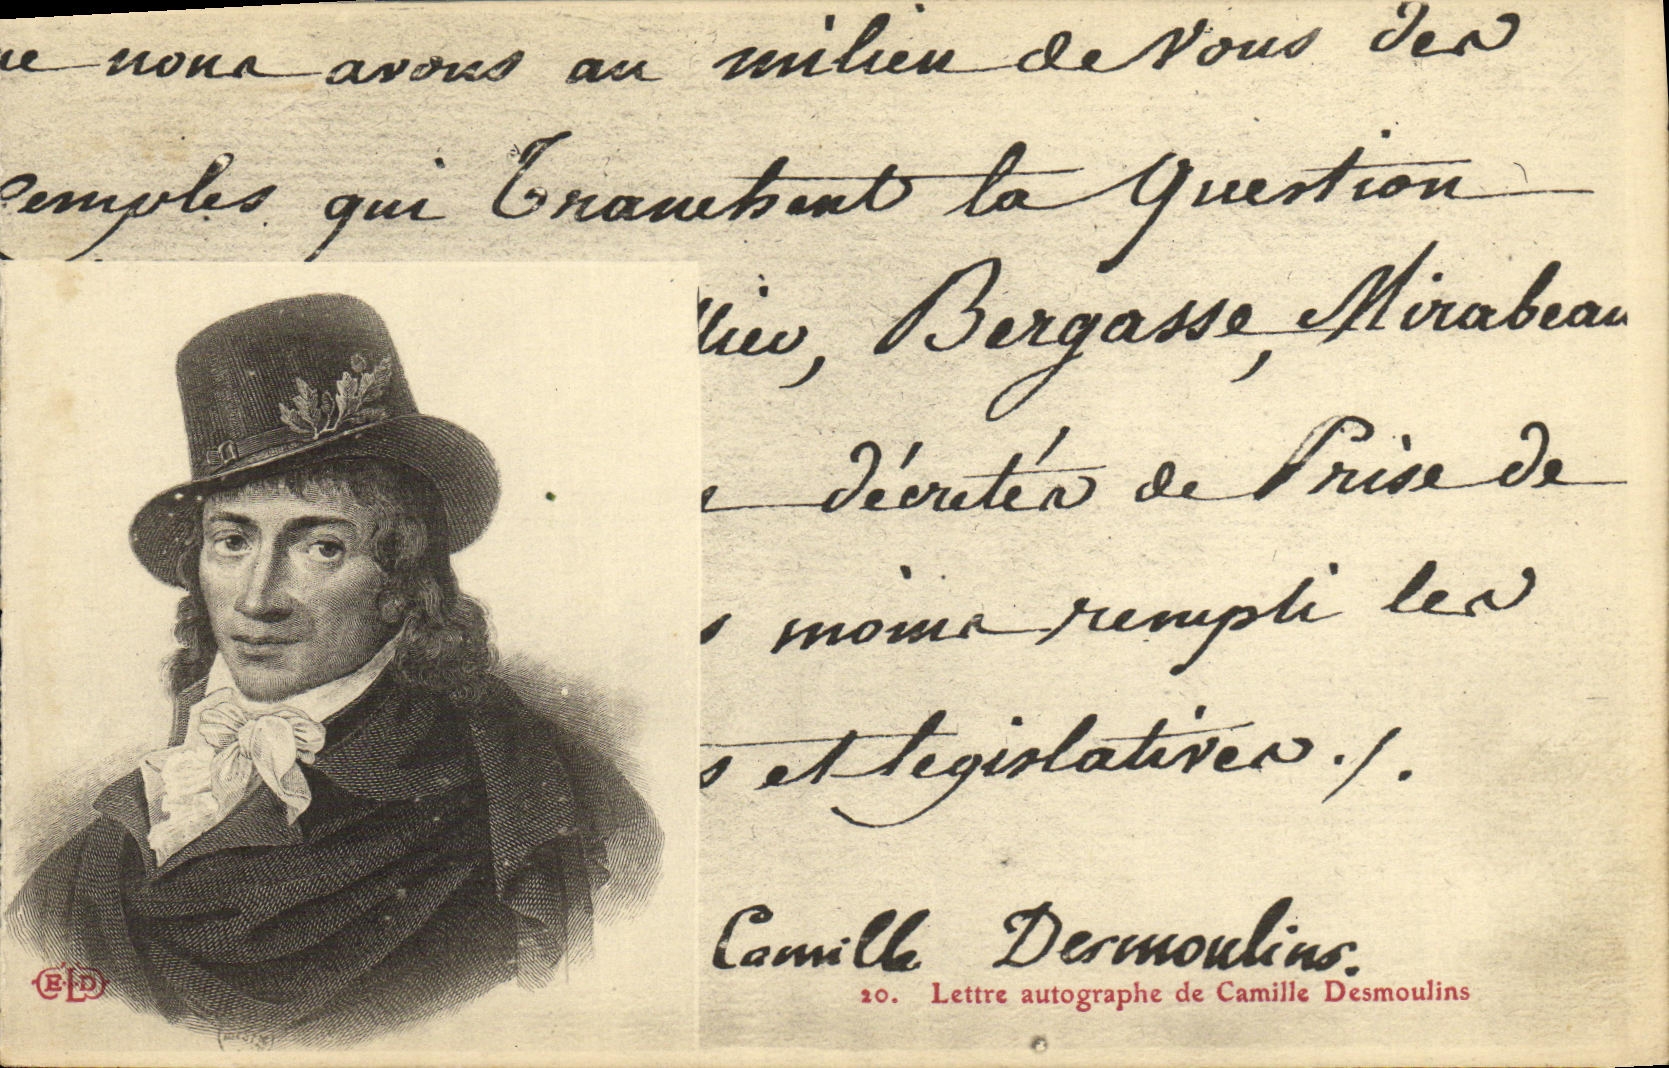 ue nous avons au milieu de Vous des
emples qui Tranchent la Question
llier, Bergasse, Mirabeau
décrétés de Prise de
s moins rempli les
s et législatives ./.
Camille Desmoulins.
20. Lettre autographe de Camille Desmoulins
ELD